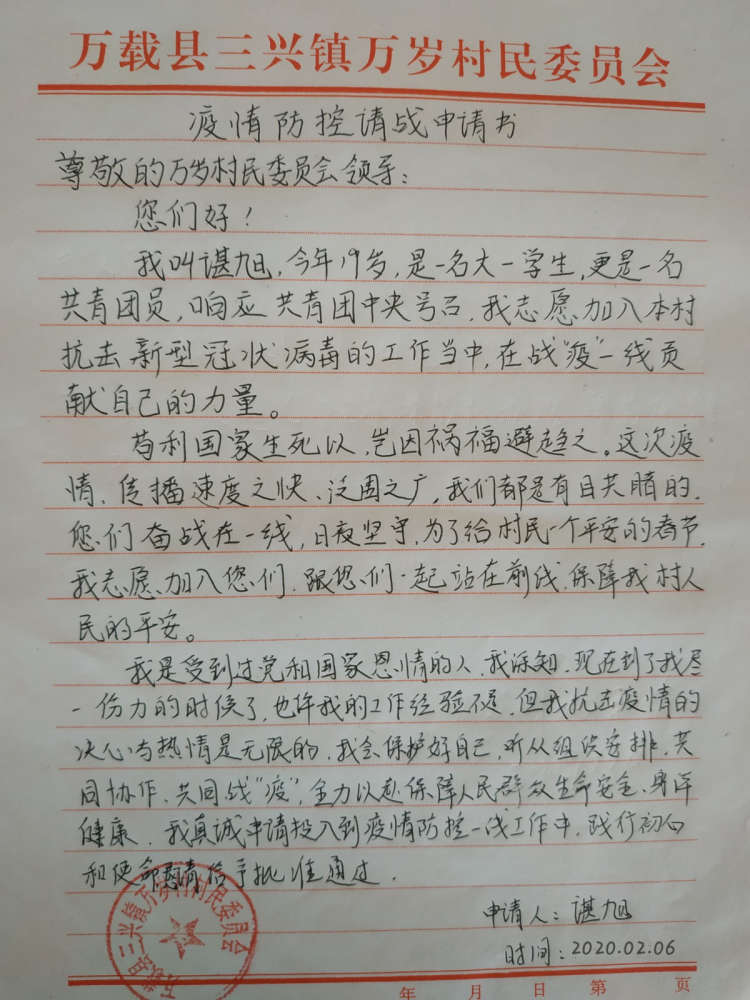 万载县三兴镇万岁村民委员会
疫情防控请战申请书
尊敬的万岁村民委员会领导：
您们好！
我叫谌旭，今年19岁，是一名大一学生，更是一名
共青团员，响应共青团中央号召，我志愿加入本村
抗击新型冠状病毒的工作当中，在战“疫”一线贡
献自己的力量。
苟利国家生死以，岂因祸福避趋之。这次疫
情，传播速度之快、泛围之广，我们都是有目共睹的，
您们奋战在一线，日夜坚守，为了给村民一个平安的春节，
我志愿加入您们，跟您们一起站在前线，保障我村人
民的平安。
我是受到过党和国家恩情的人，我深知，现在到了我尽
一份力的时候了，也许我的工作经验不足，但我抗击疫情的
决心与热情是无限的，我会保护好自己，听从组织安排，共
同协作、共同战“疫”，全力以赴保障人民群众生命安全、身体
健康，我真诚申请投入到疫情防控一线工作中，践行初心
和使命，恳请给予批准通过.
申请人：谌旭
时间：2020.02.06
万载县三兴镇万岁村村民委员会
年 月 日 第 页